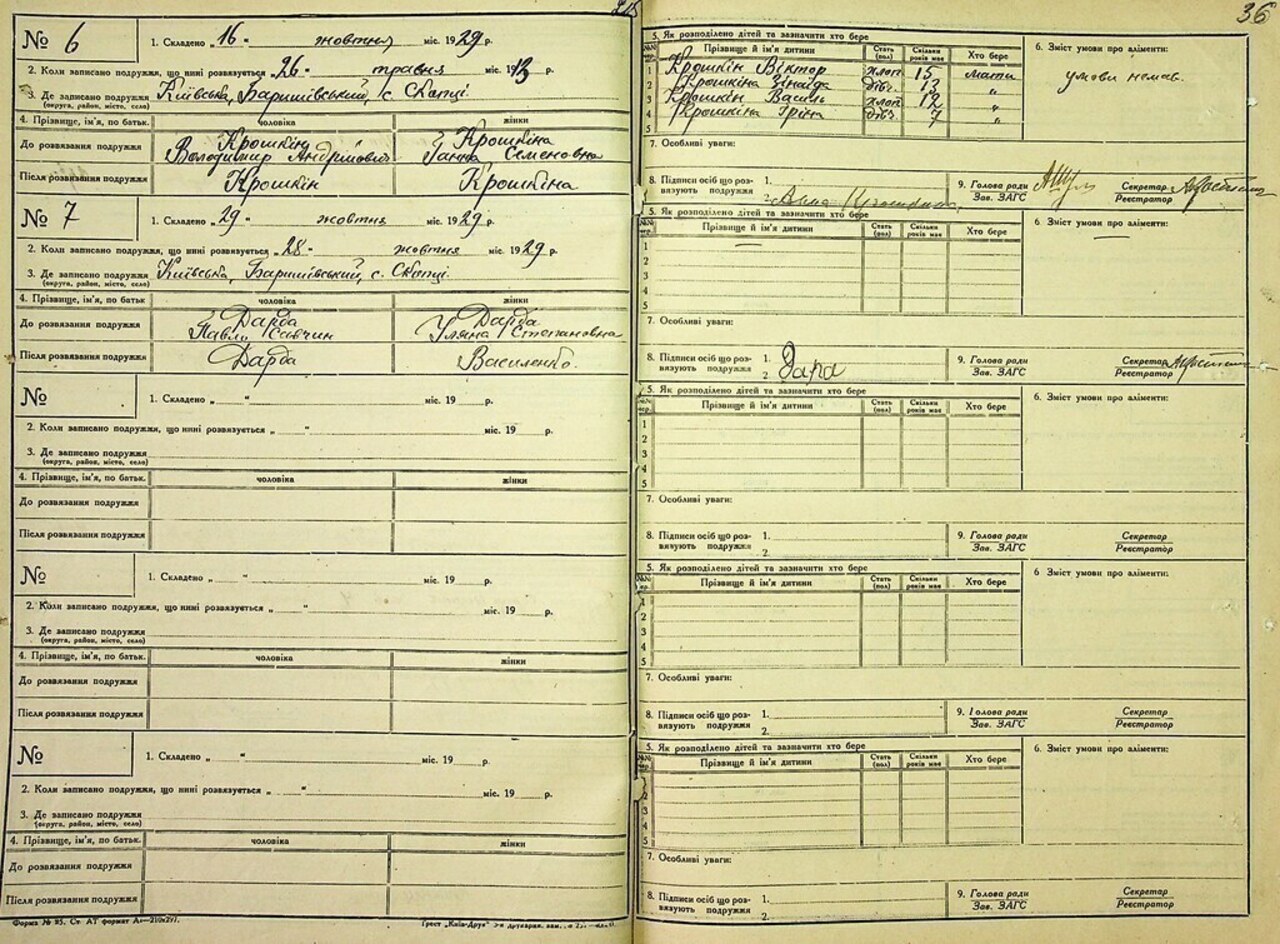 36
№ 6
1. Складено „ 16 “ жовтня міс. 1929 р.
2. Коли записано подружжя, що нині розвязується „ 26 “ травня міс. 1913 р.
3. Де записано подружжя Київська, Баришівський, с. Скопці.
(округа, район, місто, село)
4. Прізвище, ім'я, по батьк. чоловіка жінки
До розвязання подружжя Крошкін Володимир Андрійович Крошкіна Ганна Семеновна
Після розвязання подружжя Крошкін Крошкіна
5. Як розподілено дітей та зазначити хто бере
Прізвище й ім'я дитини Стать (пол) Скільки років має Хто бере
1 Крошкін Віктор хлоп 15 мати
2 Крошкіна Зінаїда дівч. 13 „
3 Крошкін Василь хлоп 12 „
4 Крошкіна Іріна дівч. 7 „
5
6. Зміст умови про аліменти:
умови немає.
7. Особливі уваги:
8. Підписи осіб що розвязують подружжя 1.
2. Анна Крошкина
9. Голова ради Зав. ЗАГС Секретар Реєстратор
№ 7
1. Складено „ 29 “ жовтня міс. 1929 р.
2. Коли записано подружжя, що нині розвязується „ 28 “ жовтня міс. 1929 р.
3. Де записано подружжя Київська, Баришівський, с. Скопці.
(округа, район, місто, село)
4. Прізвище, ім'я, по батьк чоловіка жінки
До розвязання подружжя Дарба Павло Савчин Дарба Уляна Степановна
Після розвязання подружжя Дарба Василенко.
5. Як розподілено дітей та зазначити хто бере
Прізвище й ім'я дитини Стать (пол) Скільки років має Хто бере
1 —
2
3
4
5
6. Зміст умови про аліменти:
—
7. Особливі уваги:
8. Підписи осіб що розвязують подружжя 1.
2.
9. Голова ради Зав. ЗАГС Секретар Реєстратор
№
1. Складено „ “ міс. 19 р.
2. Коли записано подружжя, що нині розвязується „ “ міс. 19 р.
3. Де записано подружжя
(округа, район, місто, село)
4. Прізвище, ім'я, по батьк. чоловіка жінки
До розвязання подружжя
Після розвязання подружжя
5. Як розподілено дітей та зазначити хто бере
Прізвище й ім'я дитини Стать (пол) Скільки років має Хто бере
1
2
3
4
5
6. Зміст умови про аліменти:
7. Особливі уваги:
8. Підписи осіб що розвязують подружжя 1.
2.
9. Голова ради Зав. ЗАГС Секретар Реєстратор
№
1. Складено „ “ міс. 19 р.
2. Коли записано подружжя, що нині розвязується „ “ міс. 19 р.
3. Де записано подружжя
(округа, район, місто, село)
4. Прізвище, ім'я, по батьк. чоловіка жінки
До розвязання подружжя
Після розвязання подружжя
5. Як розподілено дітей та зазначити хто бере
Прізвище й ім'я дитини Стать (пол) Скільки років має Хто бере
1
2
3
4
5
6 Зміст умови про аліменти:
7. Особливі уваги:
8. Підписи осіб що розвязують подружжя 1.
2.
9. Голова ради Зав. ЗАГС Секретар Реєстратор
№
1. Складено „ “ міс. 19 р.
2. Коли записано подружжя, що нині розвязується „ “ міс. 19 р.
3. Де записано подружжя
(округа, район, місто, село)
4. Прізвище, ім'я, по батьк. чоловіка жінки
До розвязання подружжя
Після розвязання подружжя
5. Як розподілено дітей та зазначити хто бере
Прізвище й ім'я дитини Стать (пол) Скільки років має Хто бере
1
2
3
4
5
6. Зміст умови про аліменти:
7. Особливі уваги:
8. Підписи осіб що розвязують подружжя 1.
2.
9. Голова ради Зав. ЗАГС Секретар Реєстратор
Форма № 85. Ст. АТ формат А₄—210х297.
Трест „Київ-Друк“